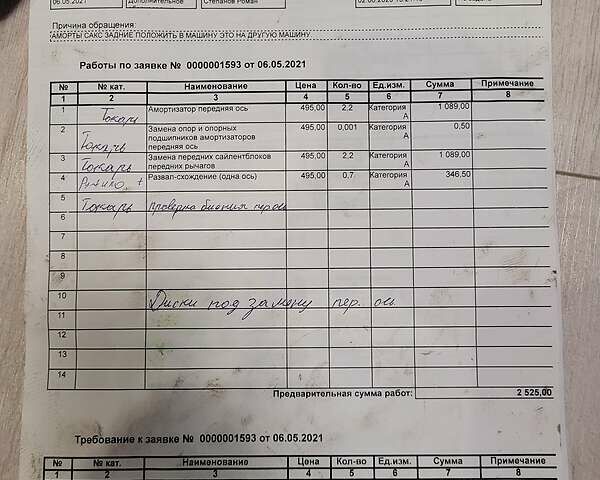 06.05.2021 Дополнительное Степанов Роман
Причина обращения:
АМОРТЫ САКС ЗАДНИЕ ПОЛОЖИТЬ В МАШИНУ ЭТО НА ДРУГУЮ МАШИНУ
Работы по заявке № 0000001593 от 06.05.2021
№ № кат. Наименование Цена Кол-во Ед.изм. Сумма Примечание
1 2 3 4 5 6 7 8
1 Токарь Амортизатор передняя ось 495,00 2,2 Категория А 1 089,00
2 Токарь Замена опор и опорных подшипников амортизаторов передняя ось 495,00 0,001 Категория А 0,50
3 Токарь Замена передних сайлентблоков передних рычагов 495,00 2,2 Категория А 1 089,00
4 Развал-схождение (одна ось) 495,00 0,7 Категория А 346,50
5 Токарь проверка биения
6
7
8
9
10 Диски под замену пер. ось
11
12
13
14
Предварительная сумма работ: 2 525,00
Требование к заявке № 0000001593 от 06.05.2021
№ № кат. Наименование Цена Кол-во Ед.изм. Сумма Примечание
1 2 3 4 5 6 7 8